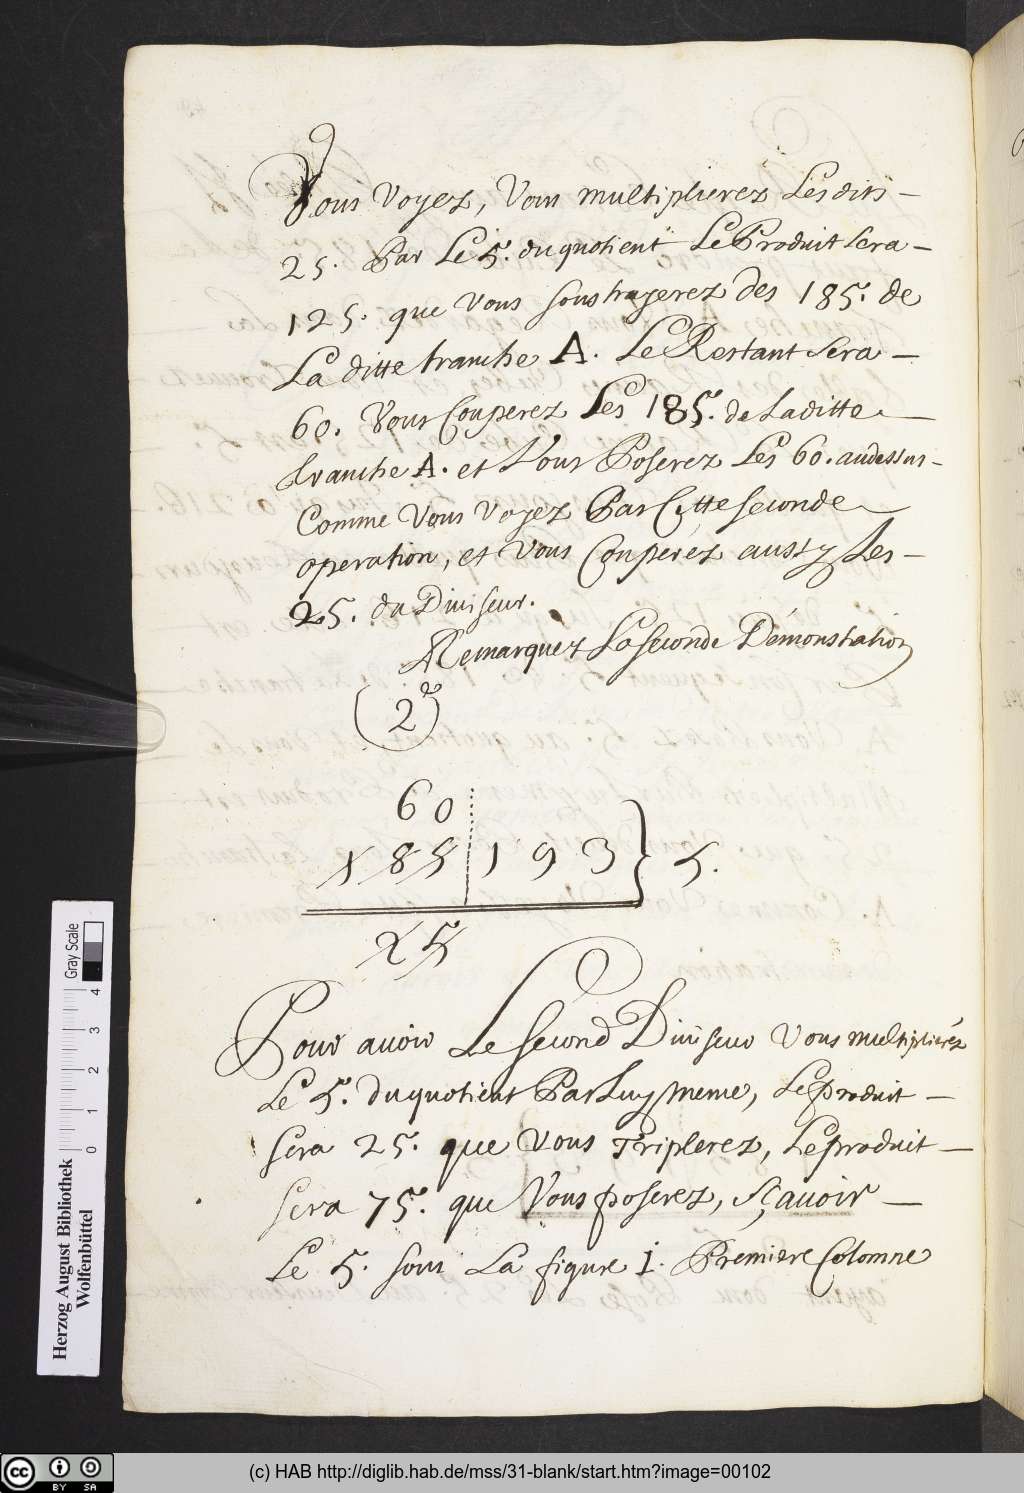 Vous Voyez, Vous multiplierez Lesdits –
25. Par Le 5. du quotient Le Produit Sera –
125. que Vous Soustrayerez des 185. de
La ditte tranche A. Le Restant Sera –
60. Vous Couperez Les 185. de Laditte –
tranche A. et Vous Poserez Les 60. audessus –
Comme Vous Voyez Par Cette Seconde
operation, et Vous Couperez aussy Les –
25. du Diviseur.
Remarquez La Seconde Démonstration
(2e)
60
185 193 } 5.
25
Pour avoir Le Second Diviseur Vous multiplierez
Le 5. du quotient Par Luy meme, Le produit –
Sera 25. que Vous Triplerez, Le produit –
Sera 75. que Vous poserez, Sçavoir –
Le 5. Sous La figure 1. Premiere Colomne
Herzog August Bibliothek
Wolfenbüttel
0 1 2 3 4
Gray Scale
cc BY SA
(c) HAB http://diglib.hab.de/mss/31-blank/start.htm?image=00102